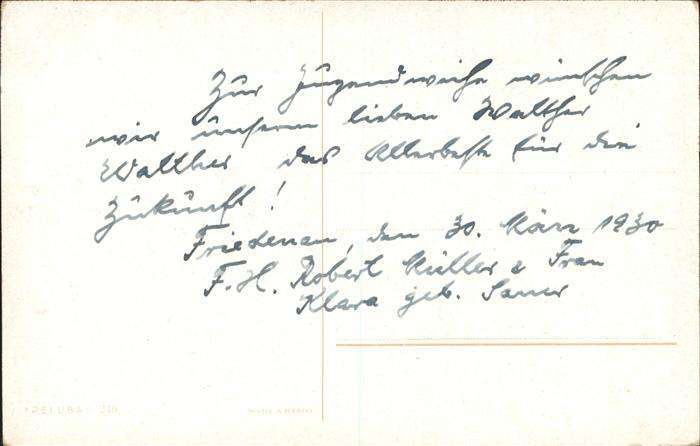 Zur Jugendweihe wünschen
wir unserm lieben Walther
Walther das Allerbeste für die
Zukunft!
Friedenau, den 30. März 1930
F. H. Robert Müller & Frau
Klara geb. Sauer
"PELUBA" 210